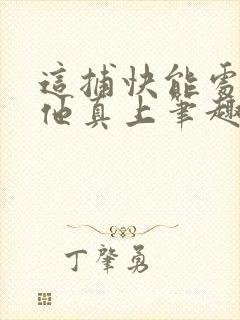 這捕快能處
他真上筆趣
丁肇勇